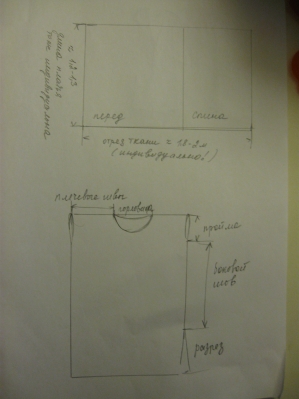 ≈ 12-13
длина платья
тоже индивидуальна
перед
спинка
отрез ткани = 1,8-2м
(индивидуально!)
плечевые швы
горловина
пройма
боковой
шов
разрез